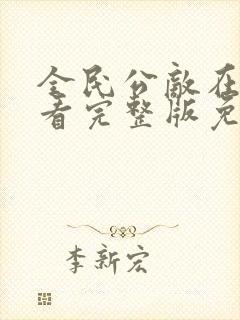 全民公敌在
看完整版免
李新宏